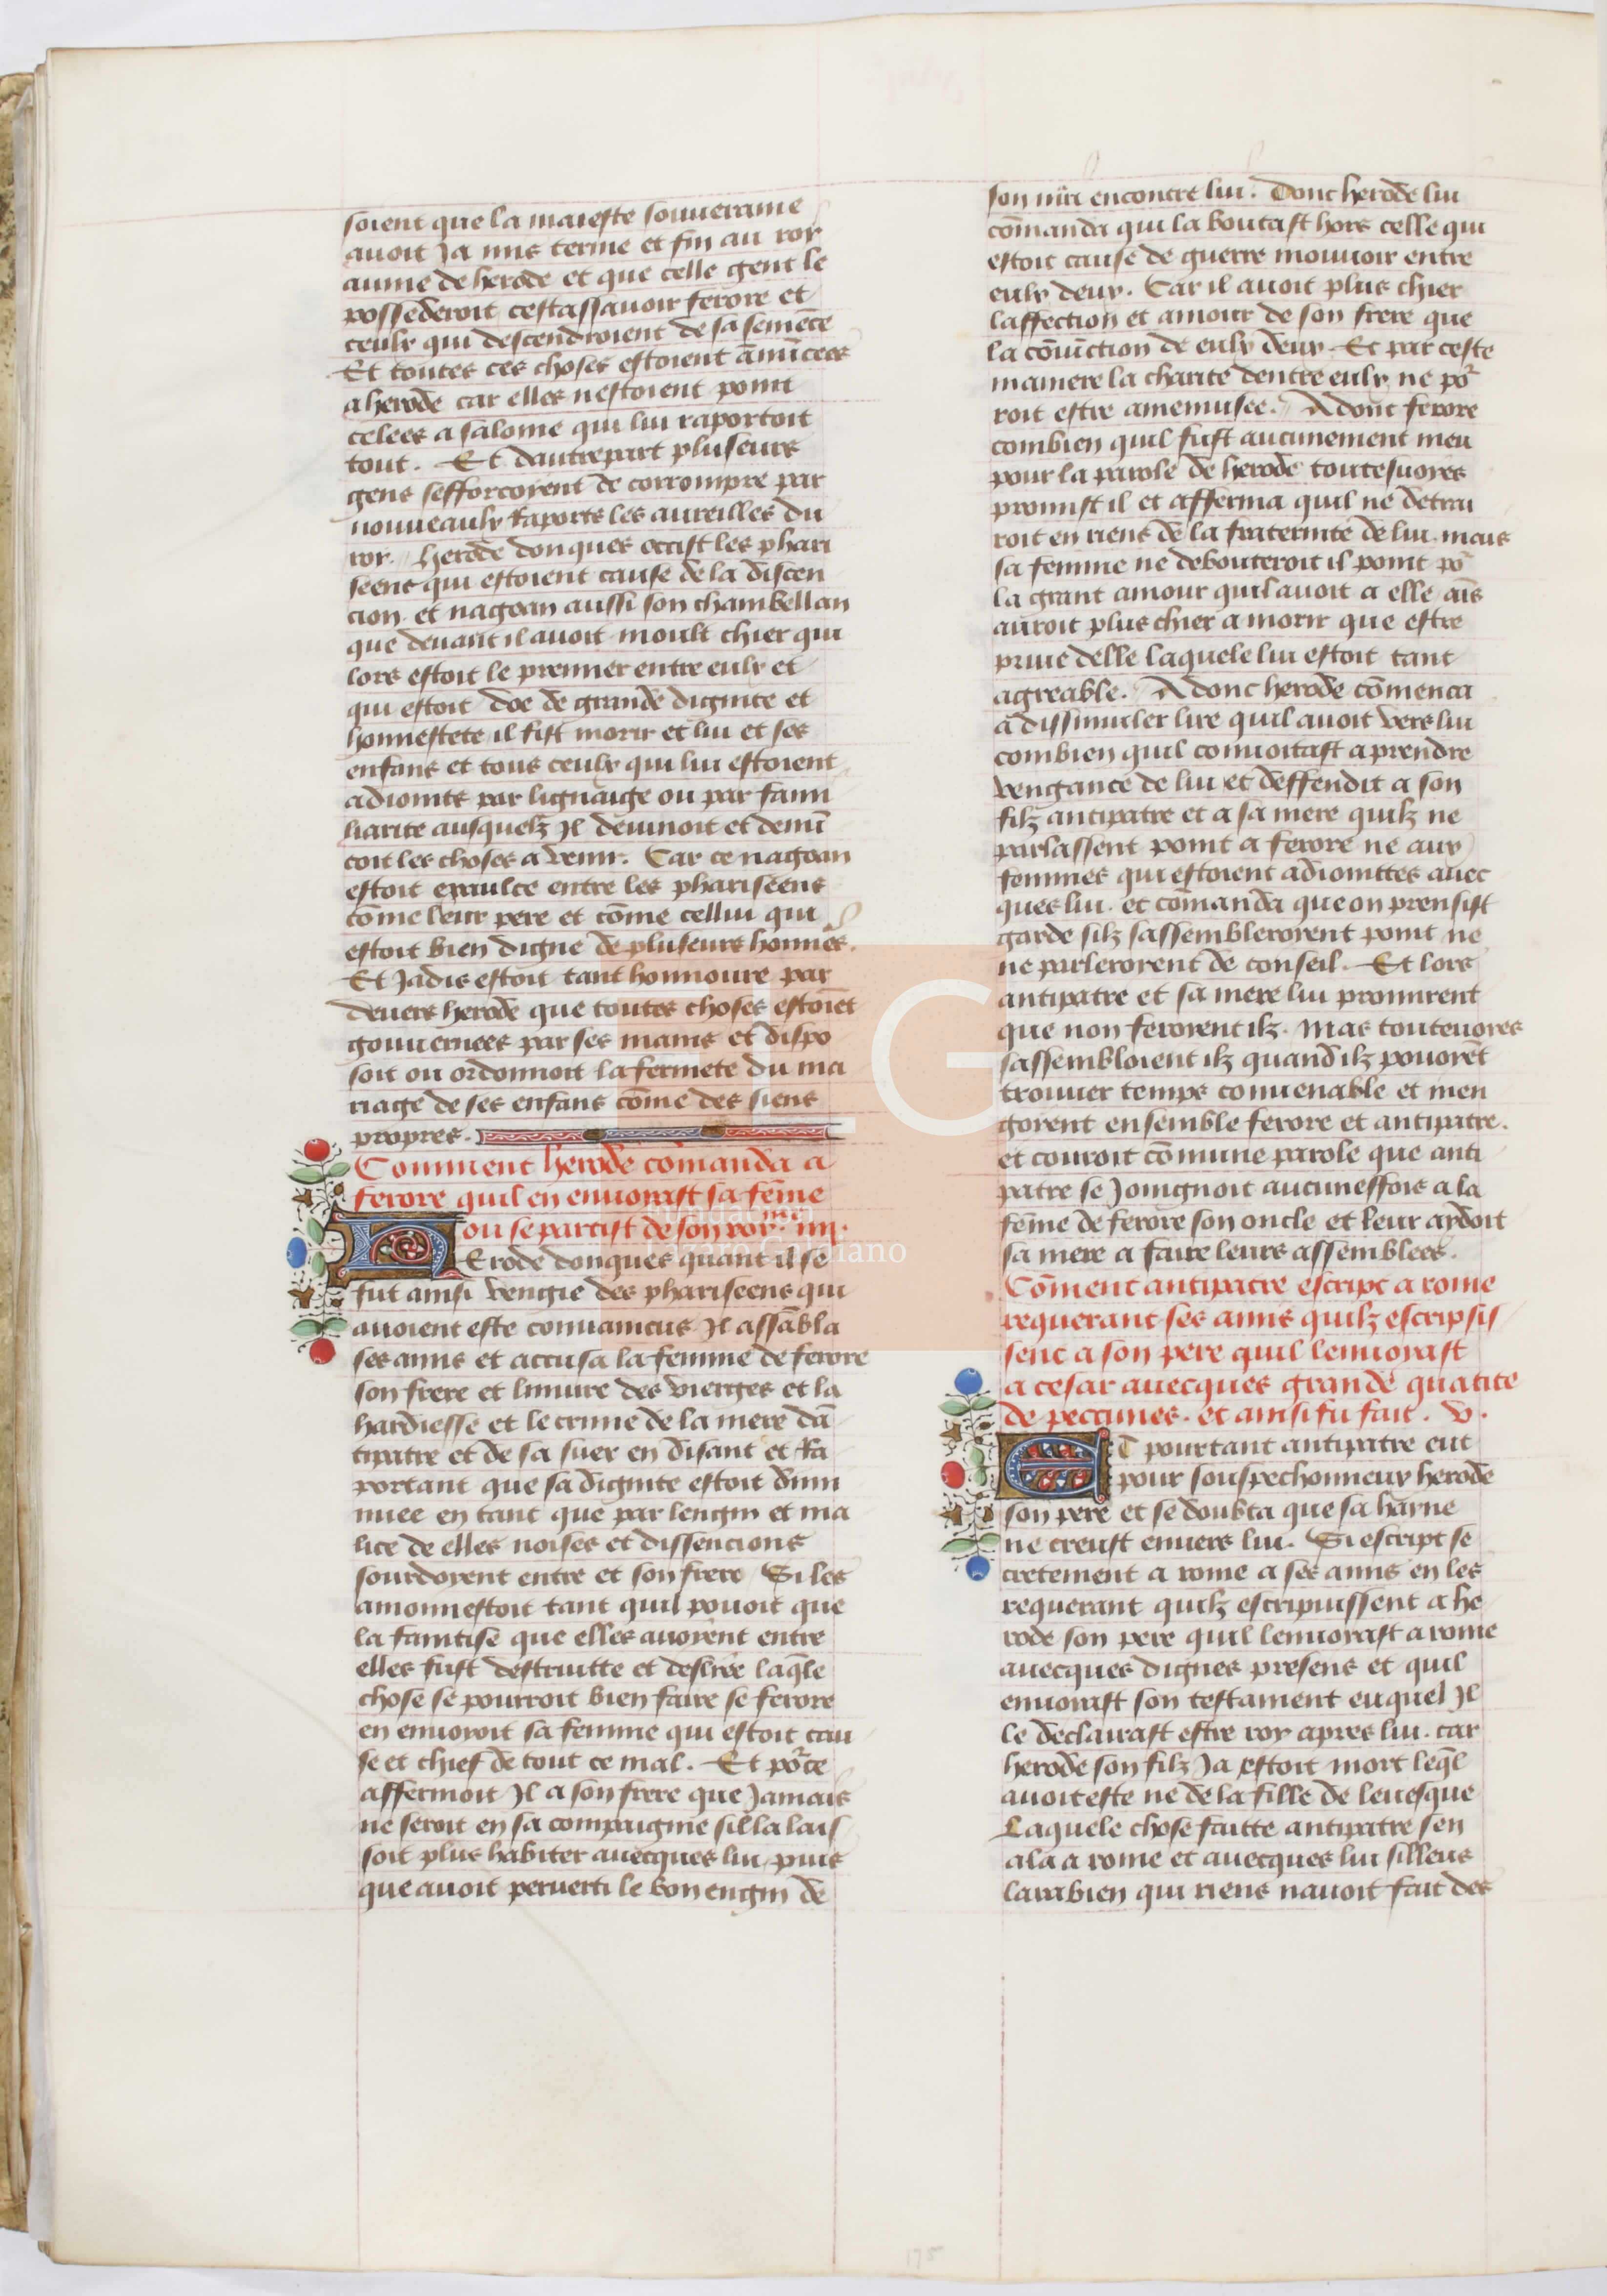 soient que la maieste souueraine
auoit Ja mis terme et fin au roy
aume de herode et que celle gent le
possederoit cestassauoir ferore et
ceulx qui descendroient de sa semēce
Et toutes ces choses estoient ānūcees
a herode car elles nestoient point
celees a salome qui lui raportoit
tout. Et dautrepart pluseurs
gens sefforcoyent de corrompre par
nouueaulx Raports les aureilles du
roy. herode donques occist les phari
seens qui estoient cause de la discen
cion et nagoan aussi son chambellan
que deuant il auoit moult chier qui
lors estoit le premier entre eulx et
qui estoit doe de grande dignite et
honnestete il fist morir et lui et ses
enfans et tous ceulx qui lui estoient
adioints par lignaige ou par fami
liarite ausquelz Il deuinoit et denū
coit les choses a venir. Car ce nagoan
estoit exaulce entre les phariseens
cōme leur pere et cōme cellui qui
estoit bien digne de pluseurs honnēs.
Et Jadis estoit tant honnoure par
deuers herode que toutes choses estoiēt
gouuernees par ses mains et dispo
soit ou ordonnoit la fermete du ma
riage de ses enfans cōme des siens
propres.
Comment herode cōmanda a
ferore quil en enuoyast sa fēme
ou se partist de son roy.me iiij.
Erode donques quant il se
fut ainsi vengie des phariseens qui
auoient este conuaincus Il assābla
ses amis et accusa la femme de ferore
son frere et liniure des vierges et la
hardiesse et le crime de la mere dā
tipatre et de sa suer en disant et Ra
portant que sa dignite estoit dimi
nuee en tant que par lengin et ma
lice de elles noises et dissencions
sourdoyent entre et son frere Si les
amonnestoit tant quil pouoit que
la faintise que elles auoyent entre
elles fust destruitte et desliee laq̄le
chose se pourroit bien faire se ferore
en enuoyoit sa femme qui estoit cau
se et chief de tout ce mal. Et po᷑ ce
affermoit Il a son frere que Jamais
ne seroit en sa compaignie sil la lais
soit plus habiter auecques lui puis
que auoit peruerti le bon engin de
son mari encontre lui. Donc herode lui
cōmanda qui la boutast hors celle qui
estoit cause de guerre mouuoir entre
eulx deux. Car il auoit plus chier
laffection et amour de son frere que
la cōiunction de eulx deux. Et par ceste
maniere la charite dentre eulx ne po᷑
roit estre amenuisee. Adonc ferore
combien quil fust aucunement meu
pour la parole de herode touteuoyes
promist il et afferma quil ne detrai
roit en riens de la fraternite de lui. mais
sa femme ne debouteroit il point po᷑
la grant amour quil auoit a elle ais̄
auroit plus chier a morir que estre
priue delle laquele lui estoit tant
agreable. Adonc herode cōmenca
a dissimuler lire quil auoit vers lui
combien quil conuoitast a prendre
vengance de lui et deffendit a son
filz antipatre et a sa mere quilz ne
parlassent point a ferore ne aux
femmes qui estoient adiointtes auec
ques lui. et cōmanda que on prensist
garde silz sassembleroyent point ne
ne parleroyent de conseil. Et lors
antipatre et sa mere lui promirent
que non feroyent ilz. Mas touteuoyes
sassembloient ilz quand ilz pouoyēt
trouuer temps conuenable et men
goyent ensemble ferore et antipatre.
et couroit cōmune parole que anti
patre se Joingnoit aucuneffois a la
fēme de ferore son oncle et leur aydoit
sa mere a faire leurs assemblees.
Cōment antipatre escript a rome
requerant ses amis quilz escripsis
sent a son pere quil lenuoyast
a cesar auecques grande quātite
de peccunes. et ainsi fu fait. v.
ET pourtant antipatre eut
pour souspechonneux herode
son pere et se doubta que sa hayne
ne creust enuers lui. Si escript se
cretement a rome a ses amis en les
requerant quilz escripuissent a he
rode son pere quil lenuoyast a rome
auecques dignes presens et quil
enuoyast son testament ouquel Il
le declairast estre roy apres lui. car
herode son filz Ja estoit mort leq̄l
auoit este ne de la fille de leuesque
Laquele chose faitte antipatre sen
ala a rome et auecques lui silleus
larabien qui riens nauoit fait des
Fundación
Lázaro Galdiano
LG
175